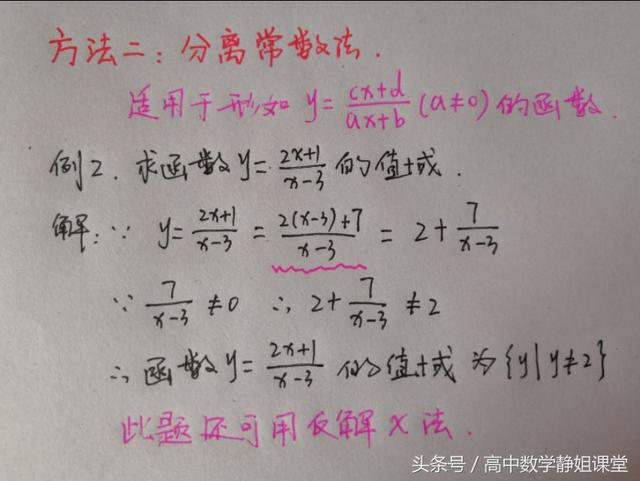 方法二:分离常数法.
适用于形如 y=\frac{cx+d}{ax+b}(a≠0)的函数.
例2.求函数y=\frac{2x+1}{x-3}的值域.
解:∵ y=\frac{2x+1}{x-3}=\frac{2(x-3)+7}{x-3}=2+\frac{7}{x-3}
∵ \frac{7}{x-3}≠0 ∴ 2+\frac{7}{x-3}≠2
∴ 函数y=\frac{2x+1}{x-3}的值域为{y|y≠2}
此题还可用反解x法.
头条号/高中数学静姐课堂